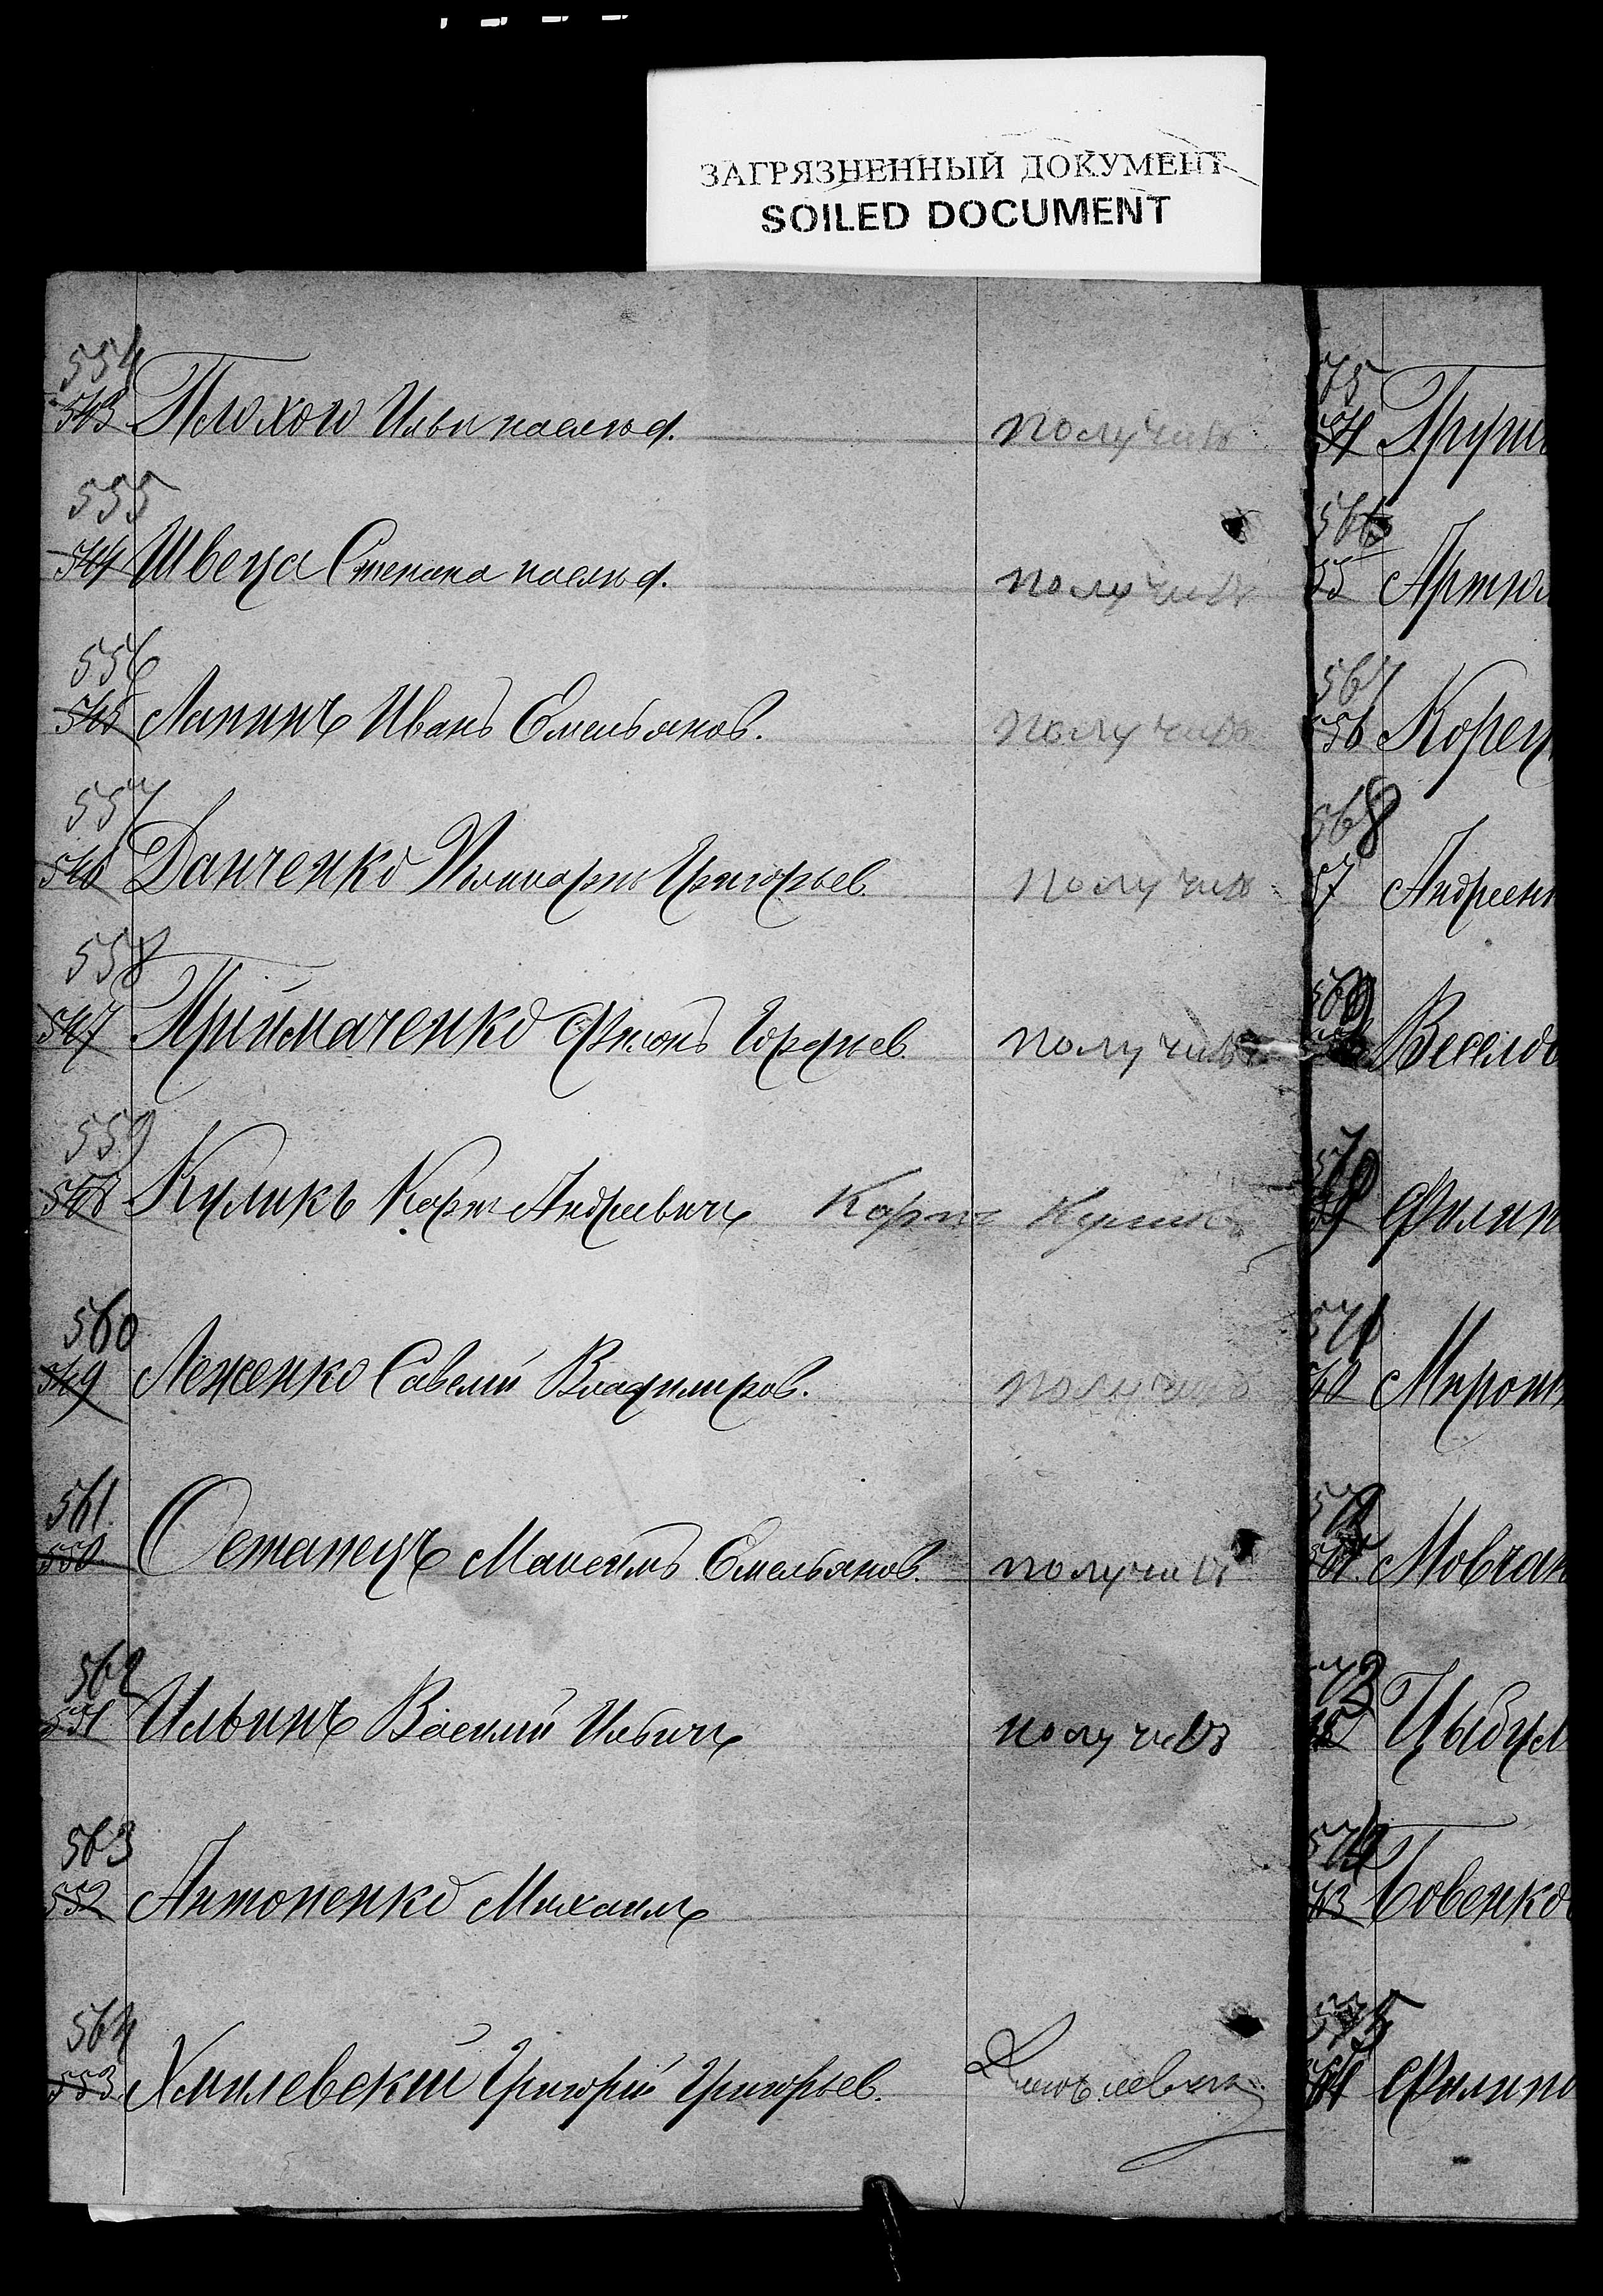 ЗАГРЯЗНЕННЫЙ ДОКУМЕНТ
SOILED DOCUMENT
554
543 Плохого Ильи наслѣд. получилъ
555
544 Швеца Степана наслѣд. получилъ
556
545 Лапинъ Иванъ Емельянов. получилъ
557
546 Данченко Григорьев. получилъ
558
547 Приймаченко получилъ
559
548 Куликъ Карпъ Андреевичъ Карпъ Куликъ
560
549 Леженко Савелій Владимиров. получилъ
561.
550 Останецъ Максимъ Емельянов. получилъ
562
551 Ильинъ Василій Ильичъ получилъ
563
552 Антоненко Михаилъ
564
553 Хмилевскій Григорій Григорьев.
Груш
566
55 Артю
567
556 Корец
568
57 Андреен
569
Весело
570
Филип
571
560 Мирон
Мовчан
Цыбул
574
Бовенко
575
Филип